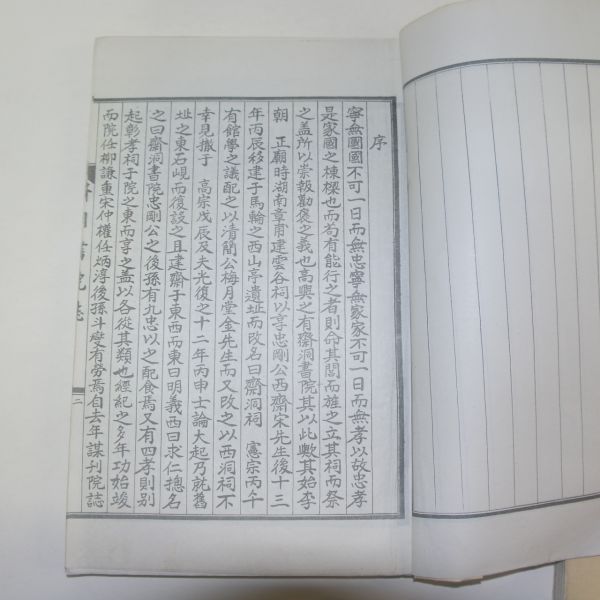 序
寧無國國不可一日而無忠寧無家家不可一日而無孝以故忠孝
是家國之棟樑也而苟有能行之者則命其閭而旌之立其祠而祭
之盖所以崇報勸褒之義也高興之有齋洞書院其以此歟其始李
朝 正廟時湖南章甫建雲谷祠以享忠剛公西齋宋先生後十三
年丙辰移建于馬輪之西山亭遺址而改名曰齋洞祠 憲宗丙午
有館學之議配之以清簡公梅月堂金先生而又改之以西洞祠不
幸見撤于 高宗戊辰及夫光復之十二年丙申士論大起乃就舊
址之東石峴而復設之且建齋于東西而東曰明義西曰求仁摠名
之曰齋洞書院忠剛公之後孫有九忠以之配食焉又有四孝則别
起彰孝祠于院之東而享之盖以各從其類也經紀之多年功始竣
而院任柳謙重宋仲權任炳淳後孫斗燮有勞焉自去年謀刊院誌
齋洞書院誌
二